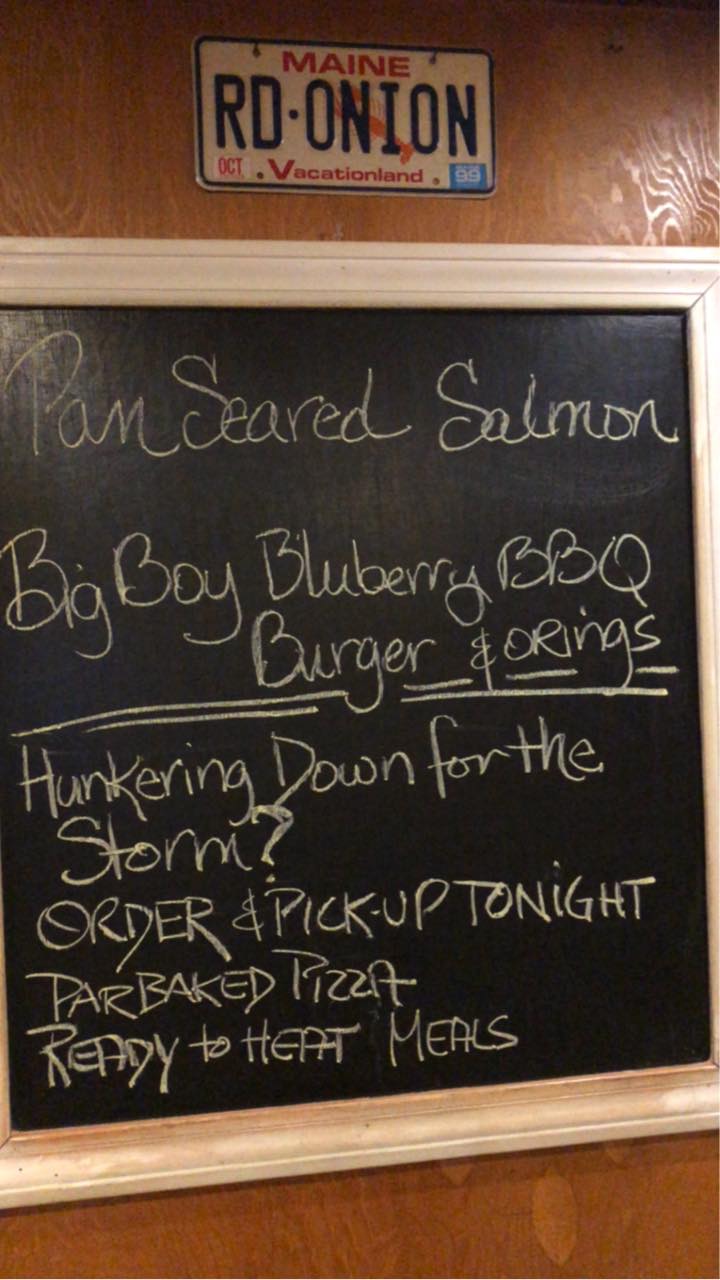 MAINE
RD·ONION
OCT Vacationland 99
Pan Seared Salmon
Big Boy Bluberry BBQ
Burger & ORings
Hunkering Down for the
Storm?
ORDER & PICK-UP TONIGHT
PARBAKED PIZZA
READY to HEAT MEALS